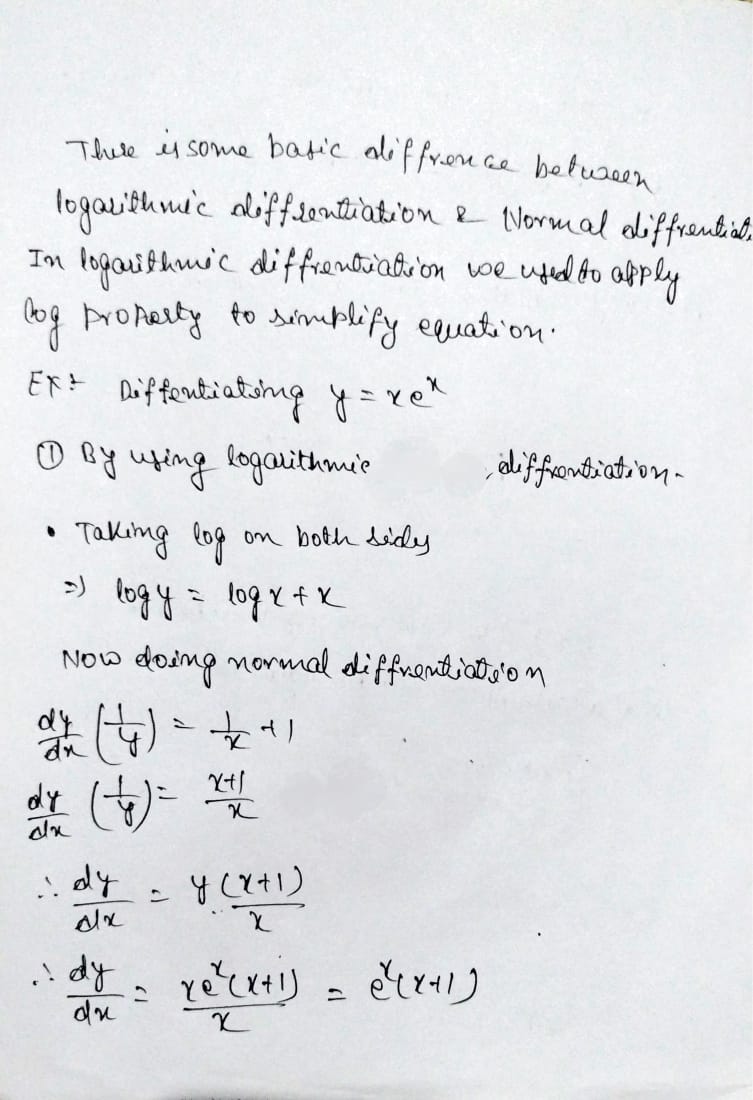 There is some basic diffrence between
logarithmic diffrentiation & Normal diffrentiat.
In logarithmic diffrentiation we used to apply
log property to simplify equation.
Ex:- Diffentiating y = xe^x
① By using logarithmic , diffrentiation.
• Taking log on both sides
=> log y = log x + x
Now doing normal diffrentiation
dy/dx (1/y) = 1/x + 1
dy/dx (1/y) = x+1/x
∴ dy/dx = y(x+1)/x
∴ dy/dx = xe^x(x+1)/x = e^x(x+1)